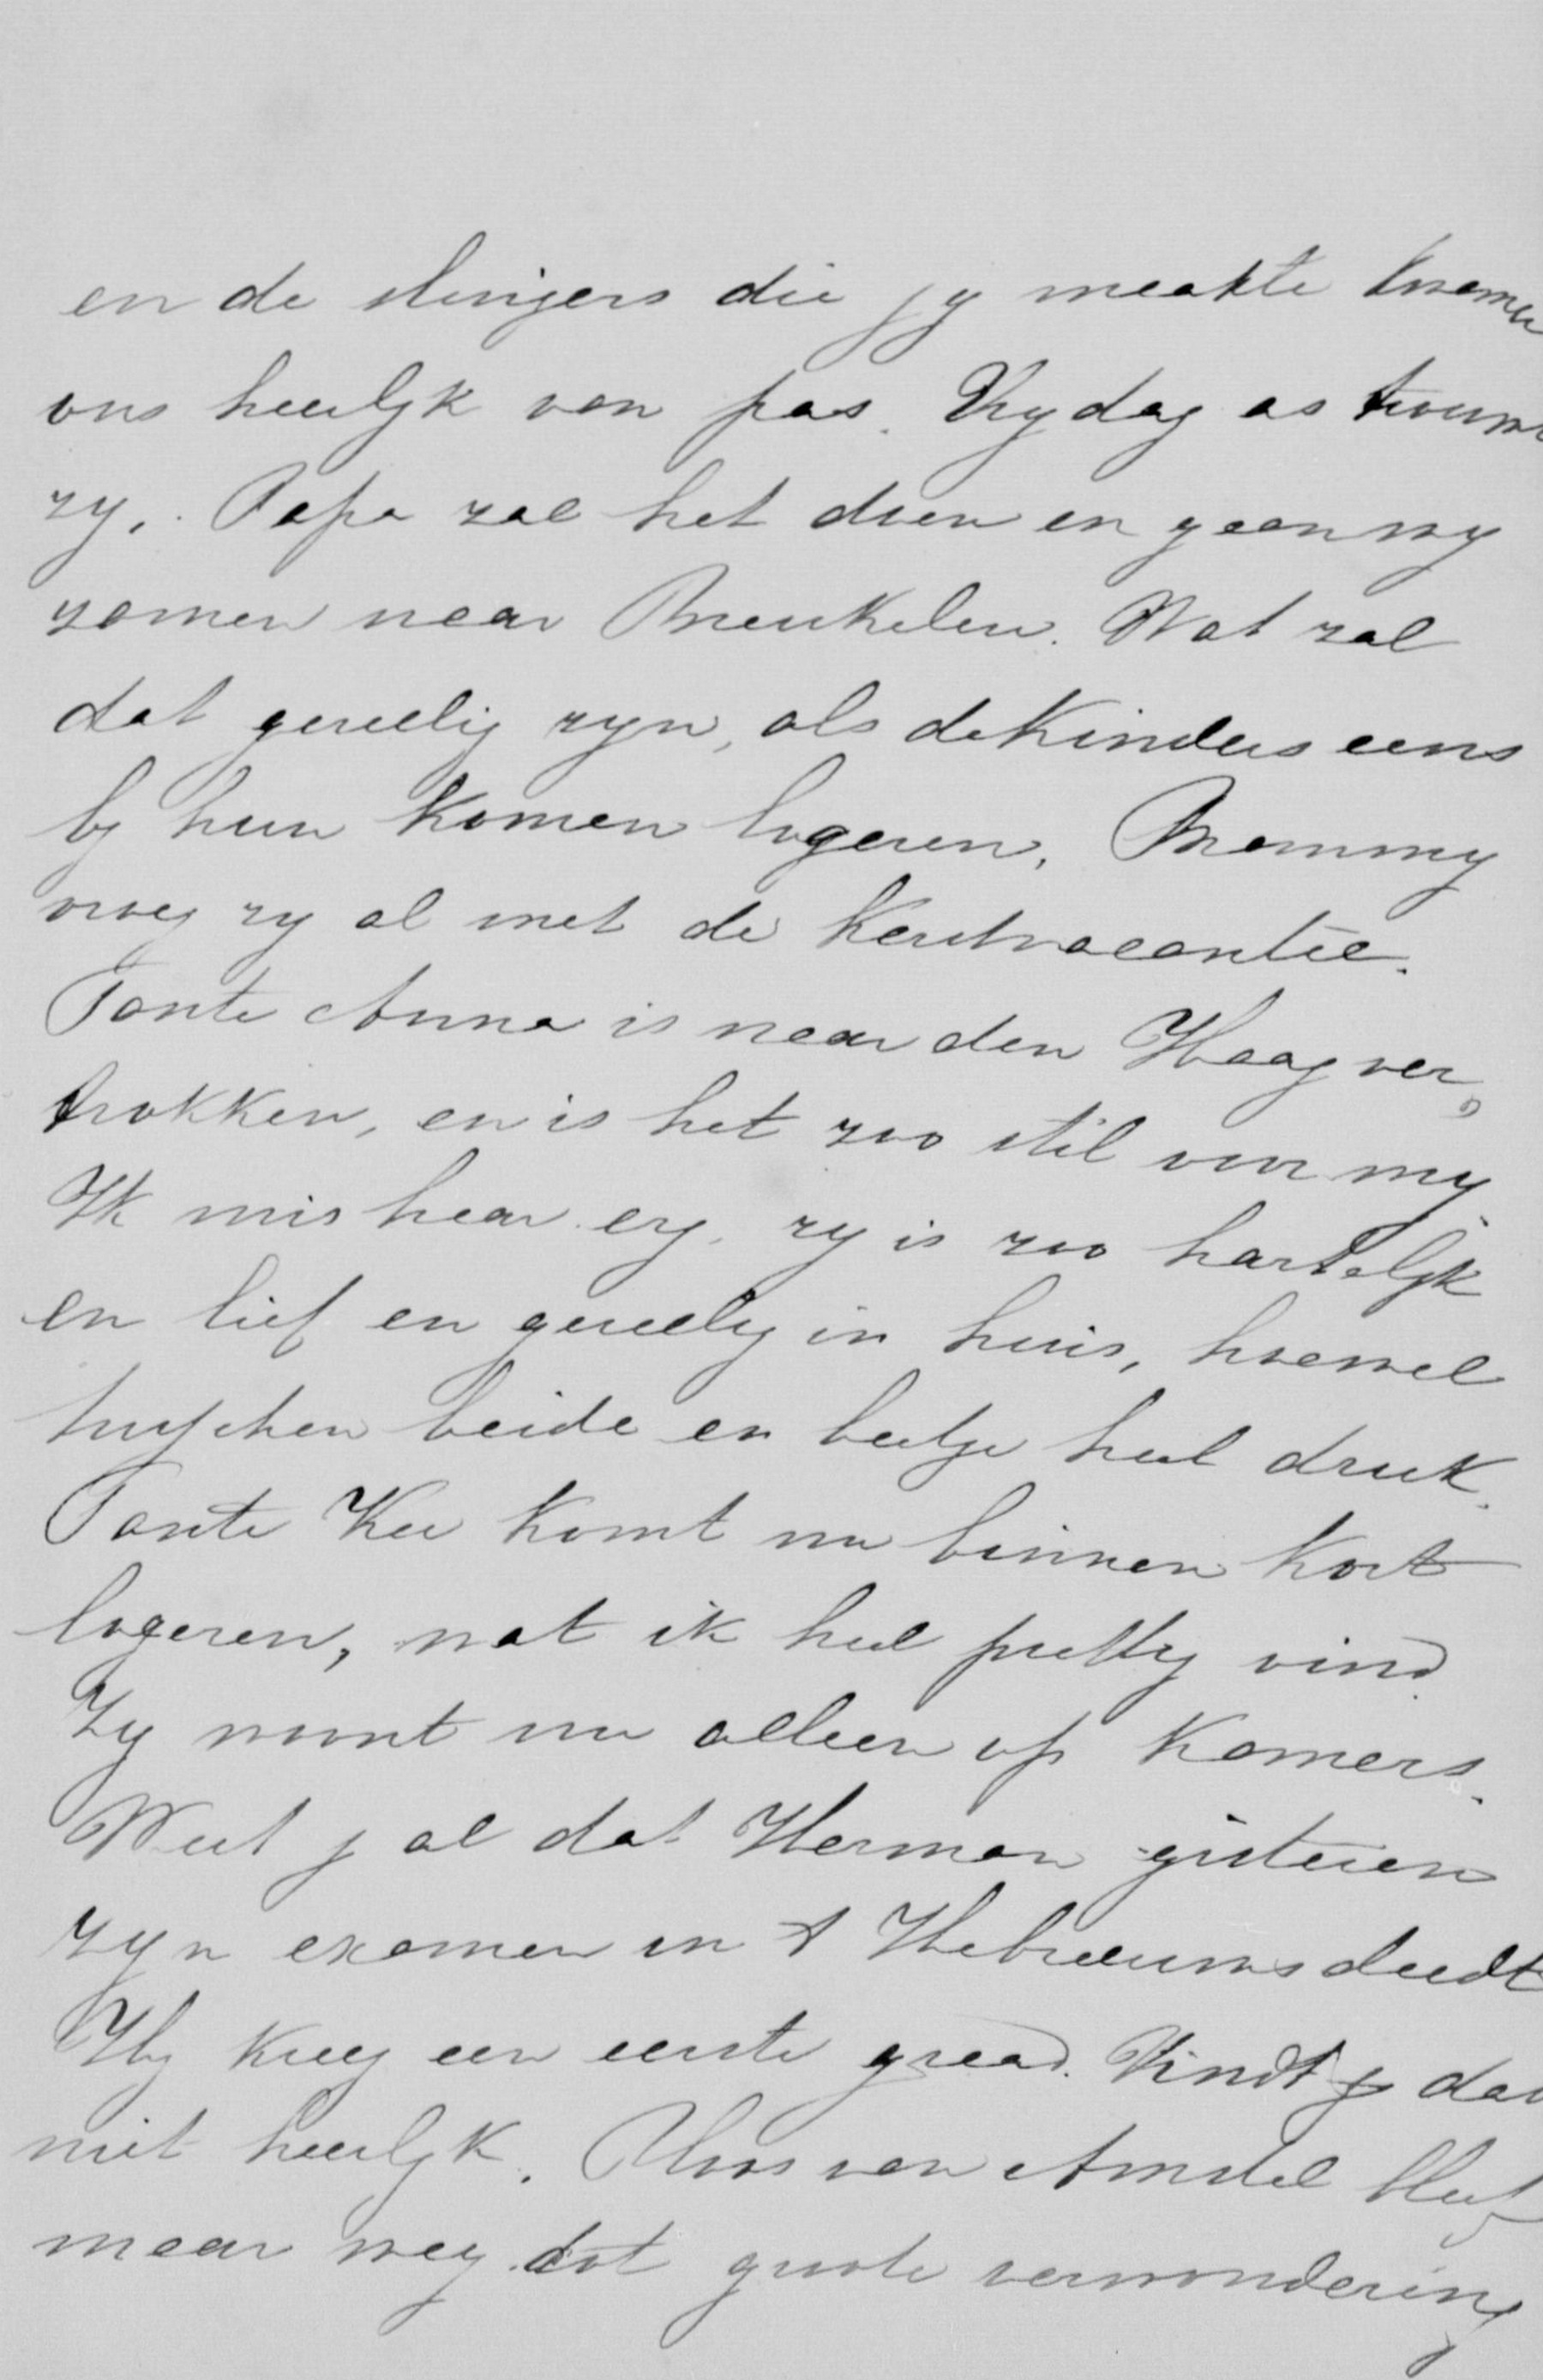 en de slingers die jy maakte kwamen
ons heerlyk van pas. Vrydag as trouwen
zy. Papa zal het doen en gaan wy
zamen naar Breukelen. Wat zal
dat gezellig zyn, als de Kinders eens
by hun Komen logeren. Mammy
vroeg zy al met de Kerstvacantie.
Tante Anna is naar den Haag ver„
trokken, en is het zoo stil voor my.
Ik mis haar erg. zy is zoo hartelyk
en lief en gezellig in huis, hoewel
tusschen beide en beetje heel druk.
Tante Kee Komt nu binnen Kort
logeren, wat ik heel prettig vind.
Zy woont nu alleen op Kamers.
Weet j al dat Herman gisteren
zyn examen in 't Hebreeuws deedt
Hy Kreeg een eerste graad. Vindt je dat
niet heerlyk. Voos van Amstel bleef
maar weg tot groote verwondering